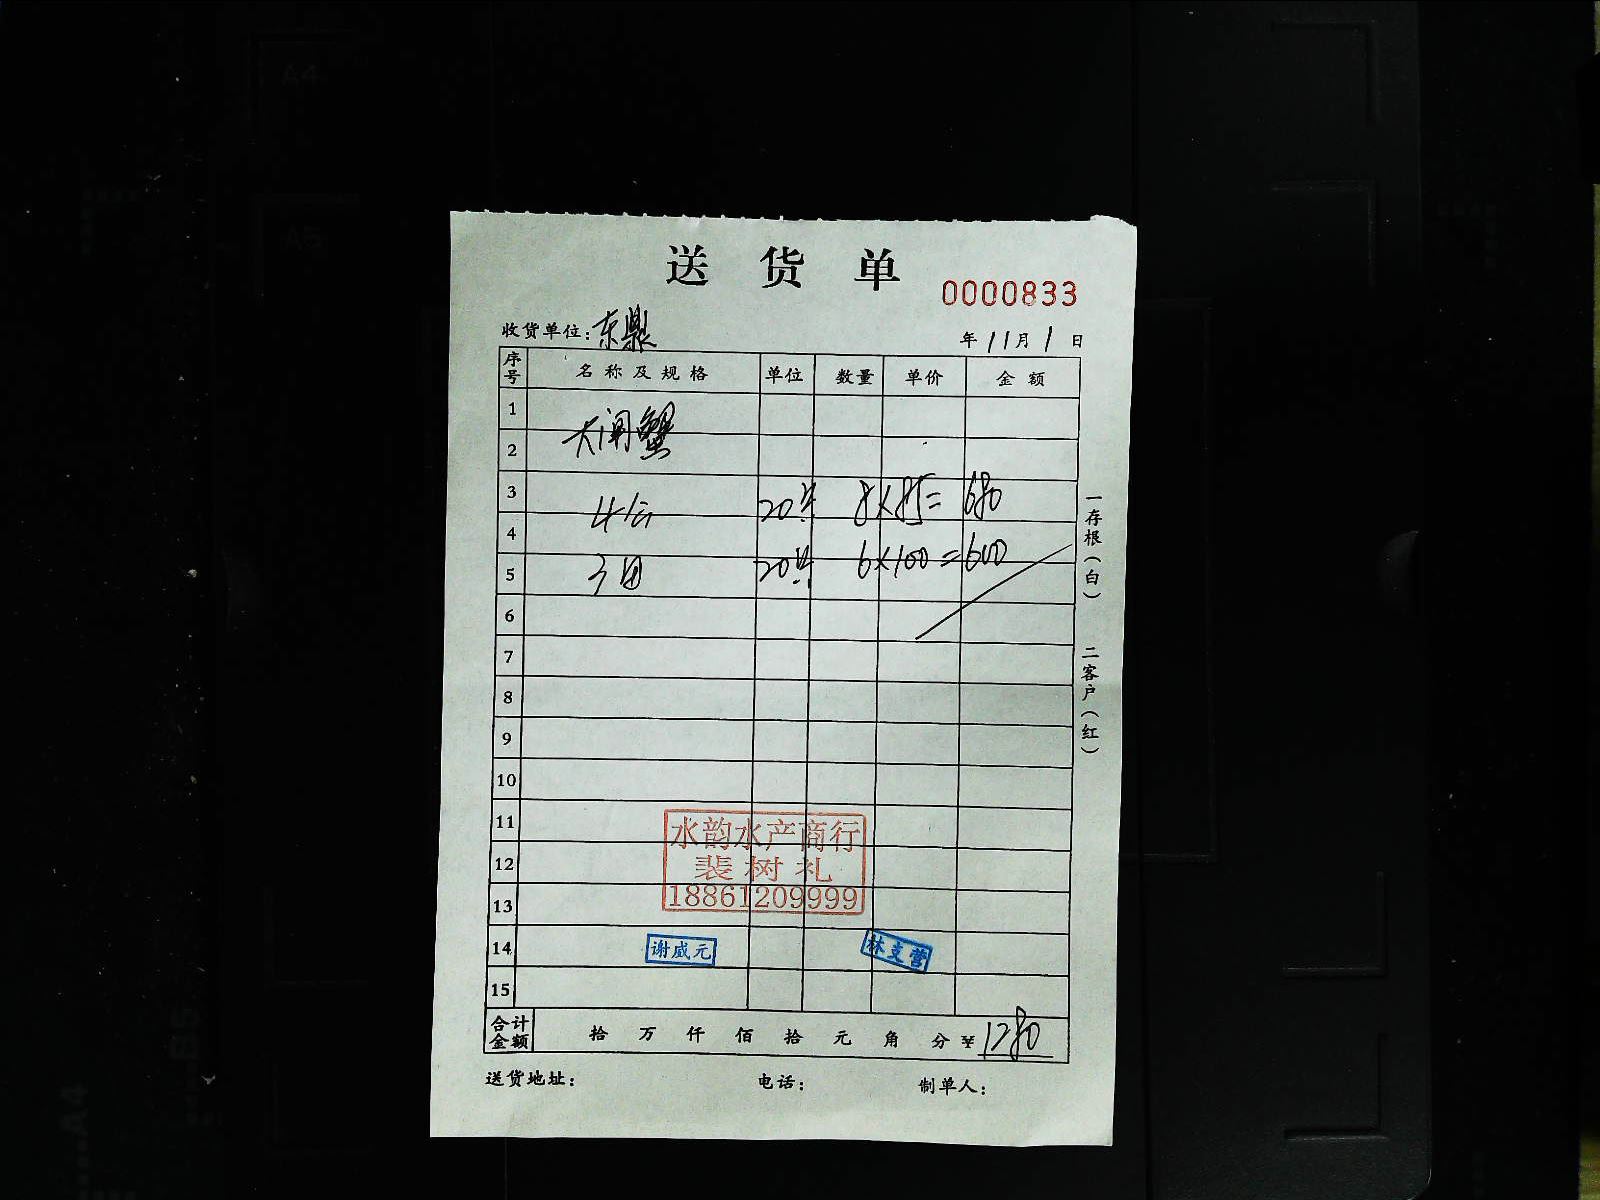 送货单
0000833
收货单位：东鼎 年11月1日
序号 名称及规格 单位 数量 单价 金额
1
大闸蟹
2
3 4公 20只 8×85=680
4
5 3母 20只 6×100=600
6
7
8
9
10
11
12
13
14
15
水韵水产商行
裴树礼
18861209999
谢咸元
林支营
合计金额 拾 万 仟 佰 拾 元 角 分 ¥1280
送货地址： 电话： 制单人：
一存根（白） 二客户（红）
A4
A5
B5
A4